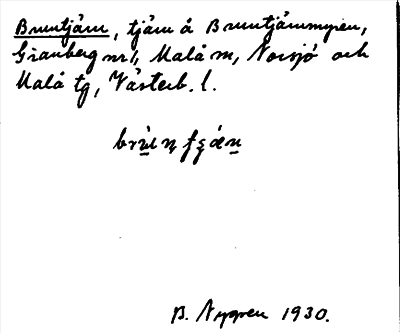 Bruntjärn, tjärn å Bruntjärnmyren,
Granberg nr 1, Malå sn, Norsjö och
Malå tg, Västerb. l.
B. Nygren 1930.